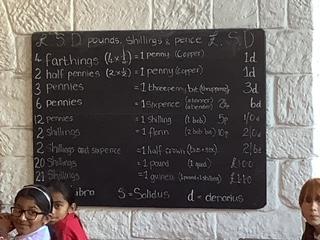 £ S D pounds, shillings & pence £ S D
4 farthings (4 x ¼) = 1 penny (copper) 1d
2 half pennies (2 x ½) = 1 penny (copper) 1d
3 pennies = 1 threepenny bit 3d
6 pennies = 1 sixpence 6d
12 pennies = 1 shilling (1 bob) 5p 1/0d
2 shillings = 1 florin (2 bob) 10p 2/0d
2 shillings and sixpence = 1 half crown 2/6d
20 shillings = 1 pound (1 quid)
21 shillings = 1 guinea (1 pound + 1 shilling)
S = Solidus d = denarius